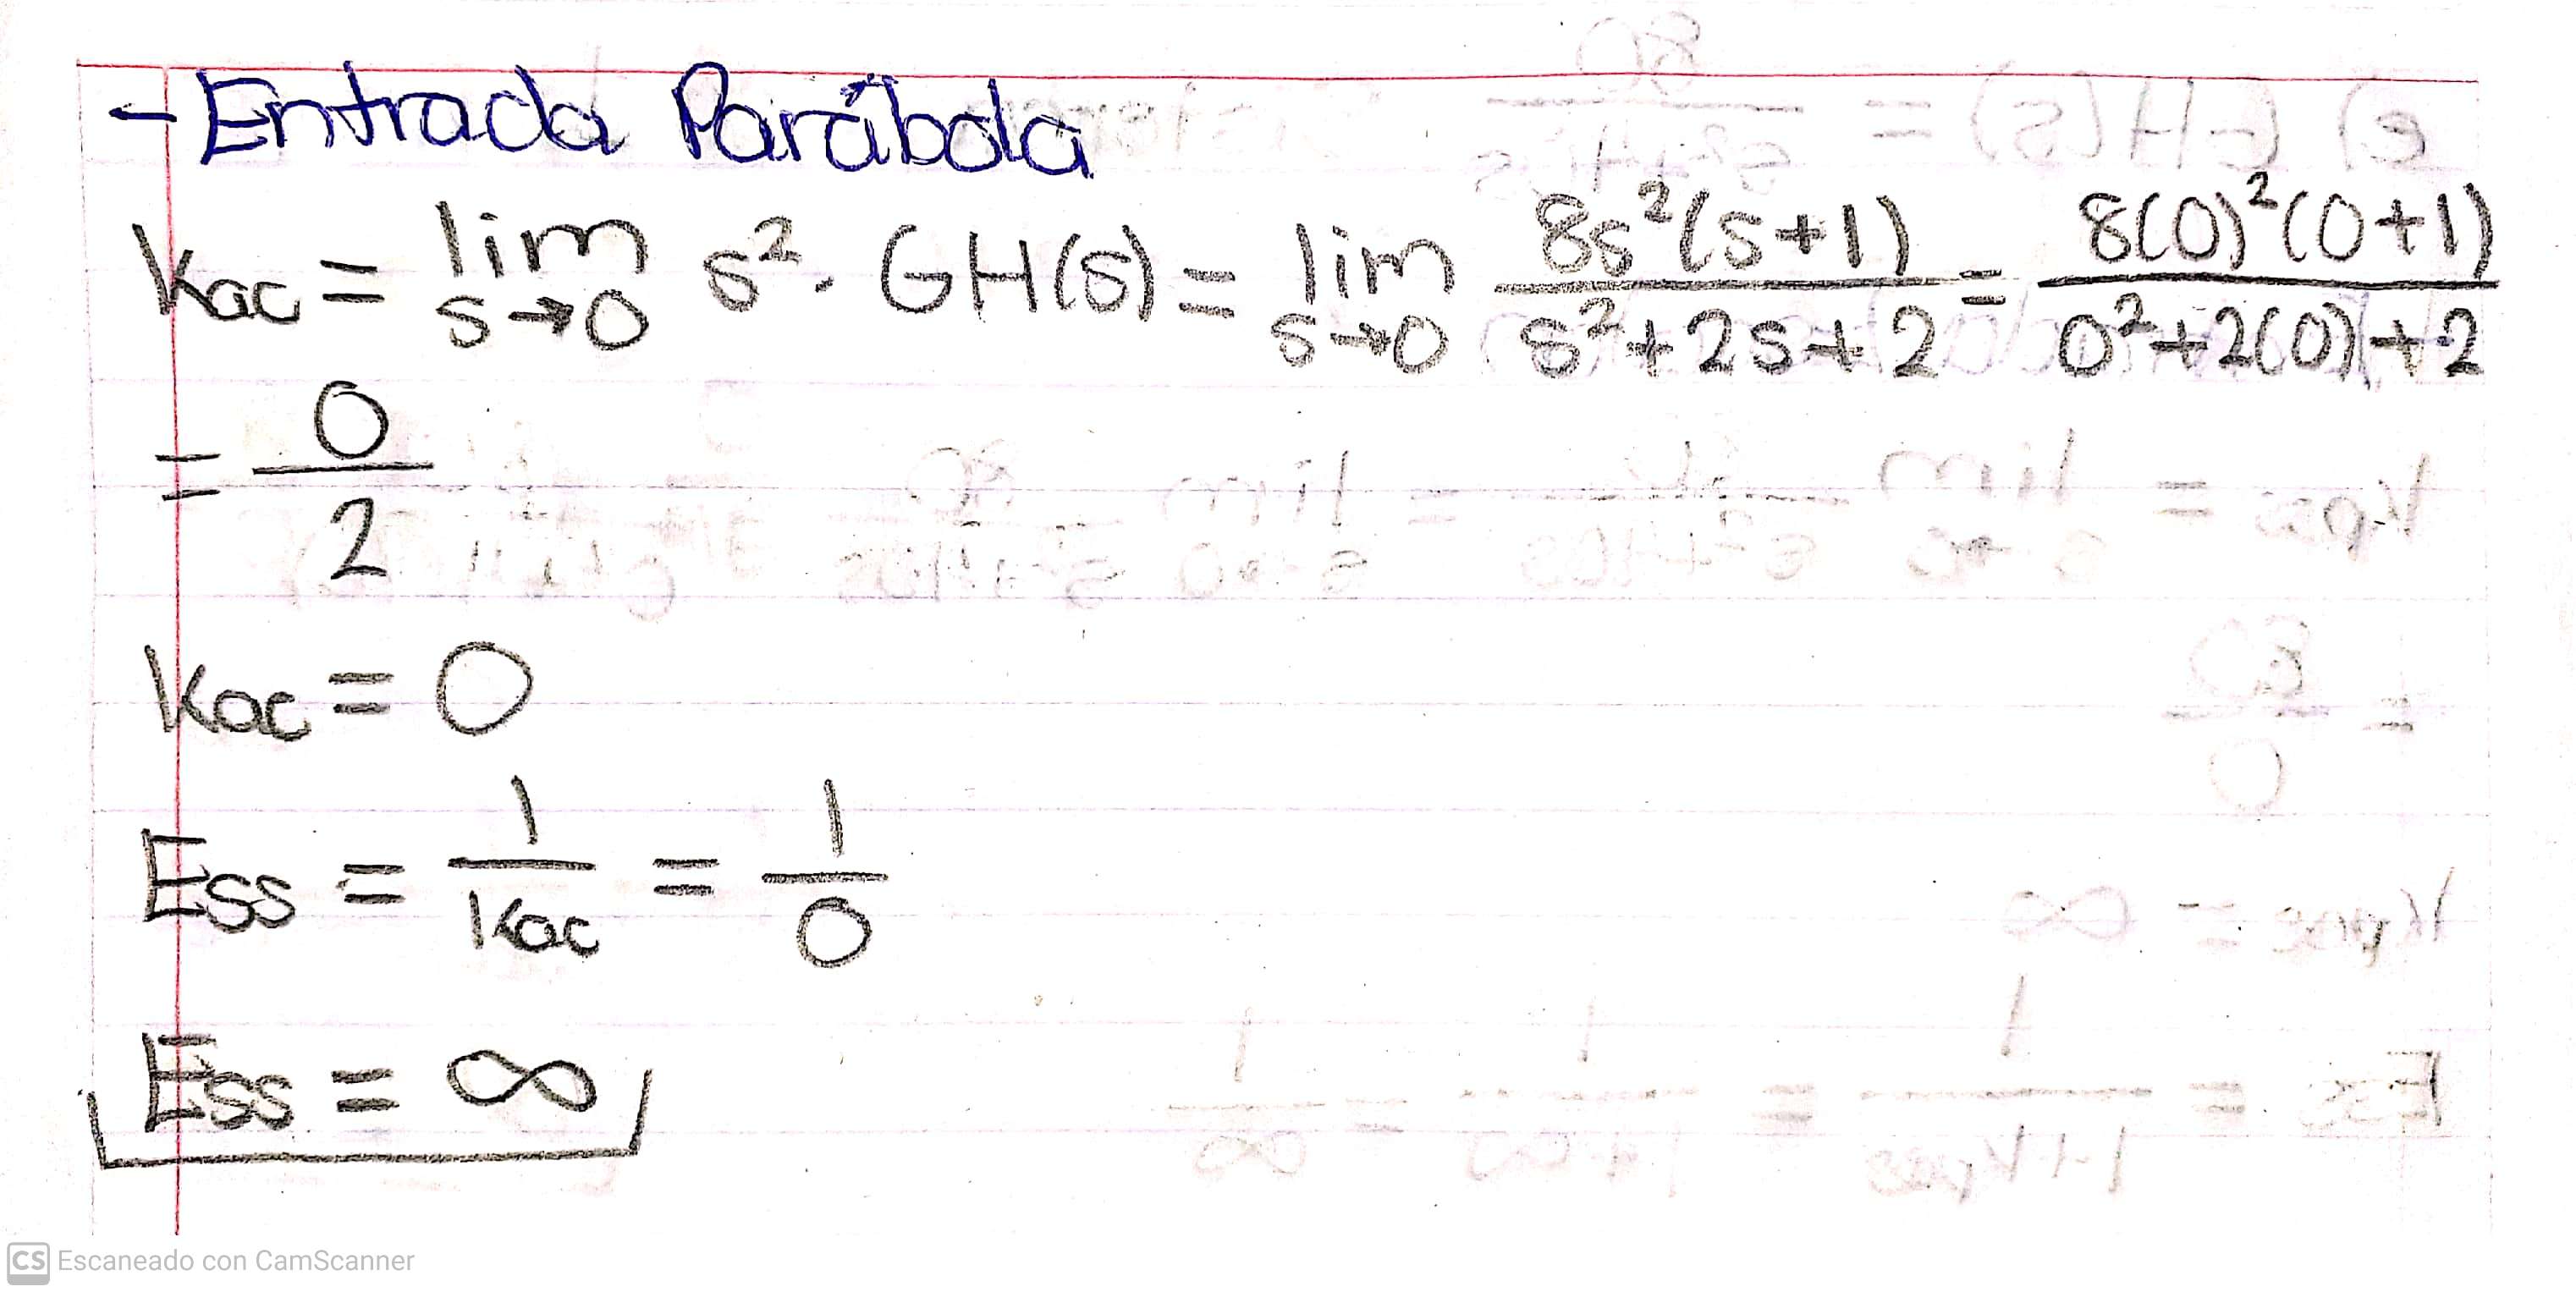 - Entrada Parábola
Kac = lim s→0 s² · GH(s) = lim s→0 8s²(s+1) / s²+2s+2 = 8(0)²(0+1) / 0²+2(0)+2
= 0 / 2
Kac = 0
Ess = 1 / Kac = 1 / 0
Ess = ∞
CS Escaneado con CamScanner